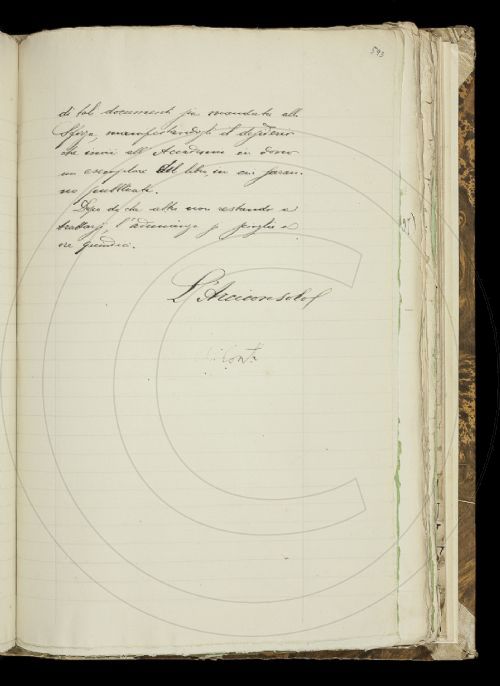 593
di tal documenti fu mandata alla
Sforza, manifestandogli il desiderio
che invii all'Accademia in dono
un esemplare del libro, in cui saran-
no pubblicati.
Dopo di che altro non restando a
trattarsi, l'adunanza si scioglie a
ore quindici.
L'Arciconsolo